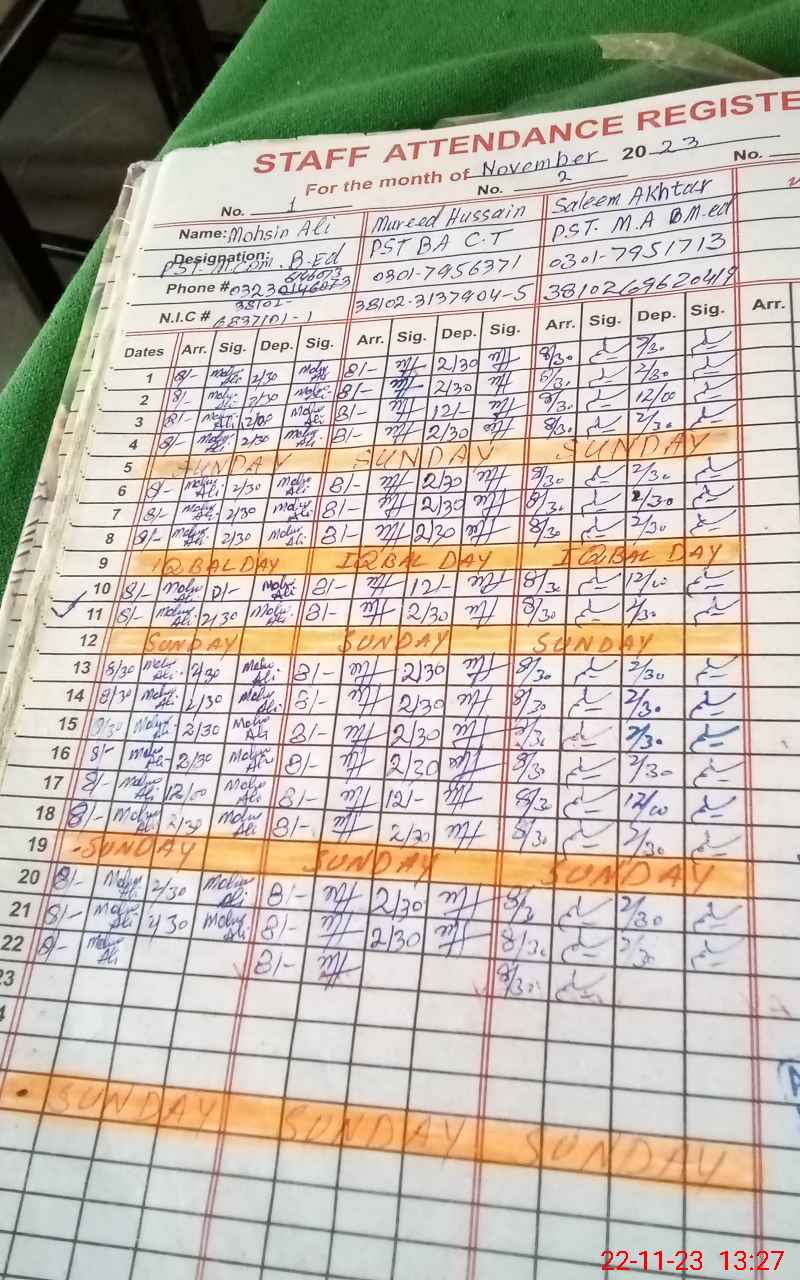 STAFF ATTENDANCE REGISTE
For the month of November 2023
No. 1 No. 2 No.
Name: Mohsin Ali Mureed Hussain Saleem Akhtar
Designation: PST. M.Com. B.Ed PST BA C.T PST. M.A B M.ed
Phone # 0301-7956371 0301-7951713
N.I.C # 38102-6837101-1 38102-3137904-5 3810269620419
Dates Arr. Sig. Dep. Sig. Arr. Sig. Dep. Sig. Arr. Sig. Dep. Sig. Arr.
1 8/- Mohsin Ali 2/30 Mohsin Ali 8/- 2/30 8/30 2/30
2 8/- Mohsin Ali 2/30 Mohsin Ali 8/- 2/30 8/30 2/30
3 8/- Mohsin Ali 12/00 Mohsin Ali 8/- 12/- 8/30 12/00
4 8/- Mohsin Ali 2/30 Mohsin Ali 8/- 2/30 8/30 2/30
5 SUNDAY SUNDAY SUNDAY
6 8/- Mohsin Ali 2/30 Mohsin Ali 8/- 2/30 8/30 2/30
7 8/- Mohsin Ali 2/30 Mohsin Ali 8/- 2/30 8/30 2/30
8 8/- Mohsin Ali 2/30 Mohsin Ali 8/- 2/30 8/30 2/30
9 IQBAL DAY IQBAL DAY IQBAL DAY
10 8/- Mohsin Ali Mohsin Ali 8/- 12/- 8/30 12/00
11 8/- Mohsin Ali 2/30 Mohsin Ali 8/- 2/30 8/30 2/30
12 SUNDAY SUNDAY SUNDAY
13 8/30 Mohsin Ali 2/30 Mohsin Ali 8/- 2/30 8/30 2/30
14 8/30 Mohsin Ali 2/30 Mohsin Ali 8/- 2/30 8/30 2/30
15 8/30 Mohsin Ali 2/30 Mohsin Ali 8/- 2/30 8/30 2/30
16 8/- Mohsin Ali 2/30 Mohsin Ali 8/- 2/30 8/30 2/30
17 8/- Mohsin Ali 12/00 Mohsin Ali 8/- 12/- 8/30 12/00
18 8/- Mohsin Ali 2/30 Mohsin Ali 8/- 2/30 8/30 2/30
19 SUNDAY SUNDAY SUNDAY
20 8/- Mohsin Ali 2/30 Mohsin Ali 8/- 2/30 8/30 2/30
21 8/- Mohsin Ali Mohsin Ali 8/- 2/30 8/30 2/30
22 8/- Mohsin Ali 8/- 8/30
23
SUNDAY SUNDAY SUNDAY
22-11-23 13:27